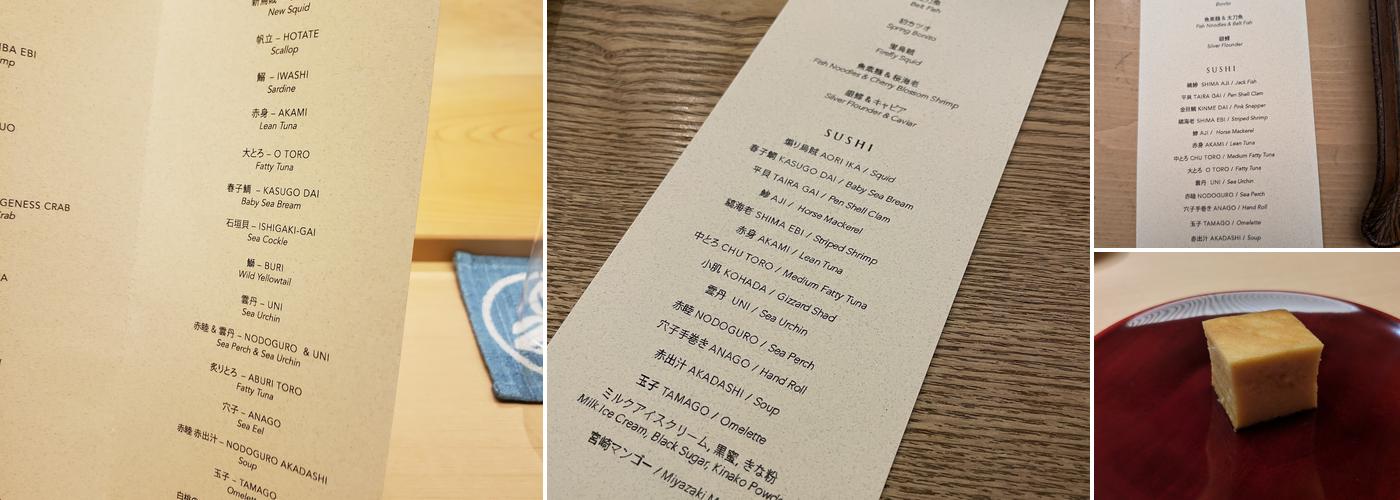 New Squid
帆立 – HOTATE
Scallop
鰯 – IWASHI
Sardine
赤身 – AKAMI
Lean Tuna
大とろ – O TORO
Fatty Tuna
春子鯛 – KASUGO DAI
Baby Sea Bream
石垣貝 – ISHIGAKI-GAI
Sea Cockle
鰤 – BURI
Wild Yellowtail
雲丹 – UNI
Sea Urchin
赤睦 & 雲丹 – NODOGURO & UNI
Sea Perch & Sea Urchin
炙りとろ – ABURI TORO
Fatty Tuna
穴子 – ANAGO
Sea Eel
赤睦 赤出汁 – NODOGURO AKADASHI
Soup
玉子 – TAMAGO
EBI
GENESS CRAB
Belt Fish
初カツオ
Spring Bonito
蛍烏賊
Firefly Squid
魚素麺 & 桜海老
Fish Noodles & Cherry Blossom Shrimp
銀鱈 & キャビア
Silver Flounder & Caviar
SUSHI
煽り烏賊 AORI IKA / Squid
春子鯛 KASUGO DAI / Baby Sea Bream
平貝 TAIRA GAI / Pen Shell Clam
鯵 AJI / Horse Mackerel
縞海老 SHIMA EBI / Striped Shrimp
赤身 AKAMI / Lean Tuna
中とろ CHU TORO / Medium Fatty Tuna
小肌 KOHADA / Gizzard Shad
雲丹 UNI / Sea Urchin
赤睦 NODOGURO / Sea Perch
穴子手巻き ANAGO / Hand Roll
赤出汁 AKADASHI / Soup
玉子 TAMAGO / Omelette
ミルクアイスクリーム, 黒蜜, きな粉
Milk Ice Cream, Black Sugar, Kinako
宮崎マンゴー / Miyazaki
Bonito
魚素麺 & 太刀魚
Fish Noodles & Belt Fish
銀鱈
Silver Flounder
SUSHI
縞鯵 SHIMA AJI / Jack Fish
平貝 TAIRA GAI / Pen Shell Clam
金目鯛 KINME DAI / Pink Snapper
縞海老 SHIMA EBI / Striped Shrimp
鯵 AJI / Horse Mackerel
赤身 AKAMI / Lean Tuna
中とろ CHU TORO / Medium Fatty Tuna
大とろ O TORO / Fatty Tuna
雲丹 UNI / Sea Urchin
赤睦 NODOGURO / Sea Perch
穴子手巻き ANAGO / Hand Roll
玉子 TAMAGO / Omelette
赤出汁 AKADASHI / Soup